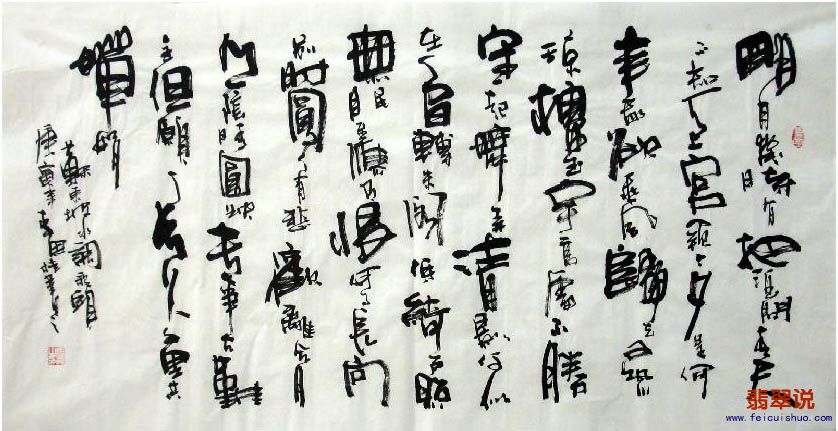 明月幾時有把酒問青天
不知天上宮闕今夕是何
年我欲乘風歸去又恐
瓊樓玉宇高處不勝
寒起舞弄清影何似
在人間轉朱閣低綺戶照
無眠不應有恨何事長向
別時圓人有悲歡離合月
有陰晴圓缺此事古難
全但願人長久千里共
嬋娟
蘇東坡水調歌頭
庚寅年
翡翠说
www.feicuishuo.com